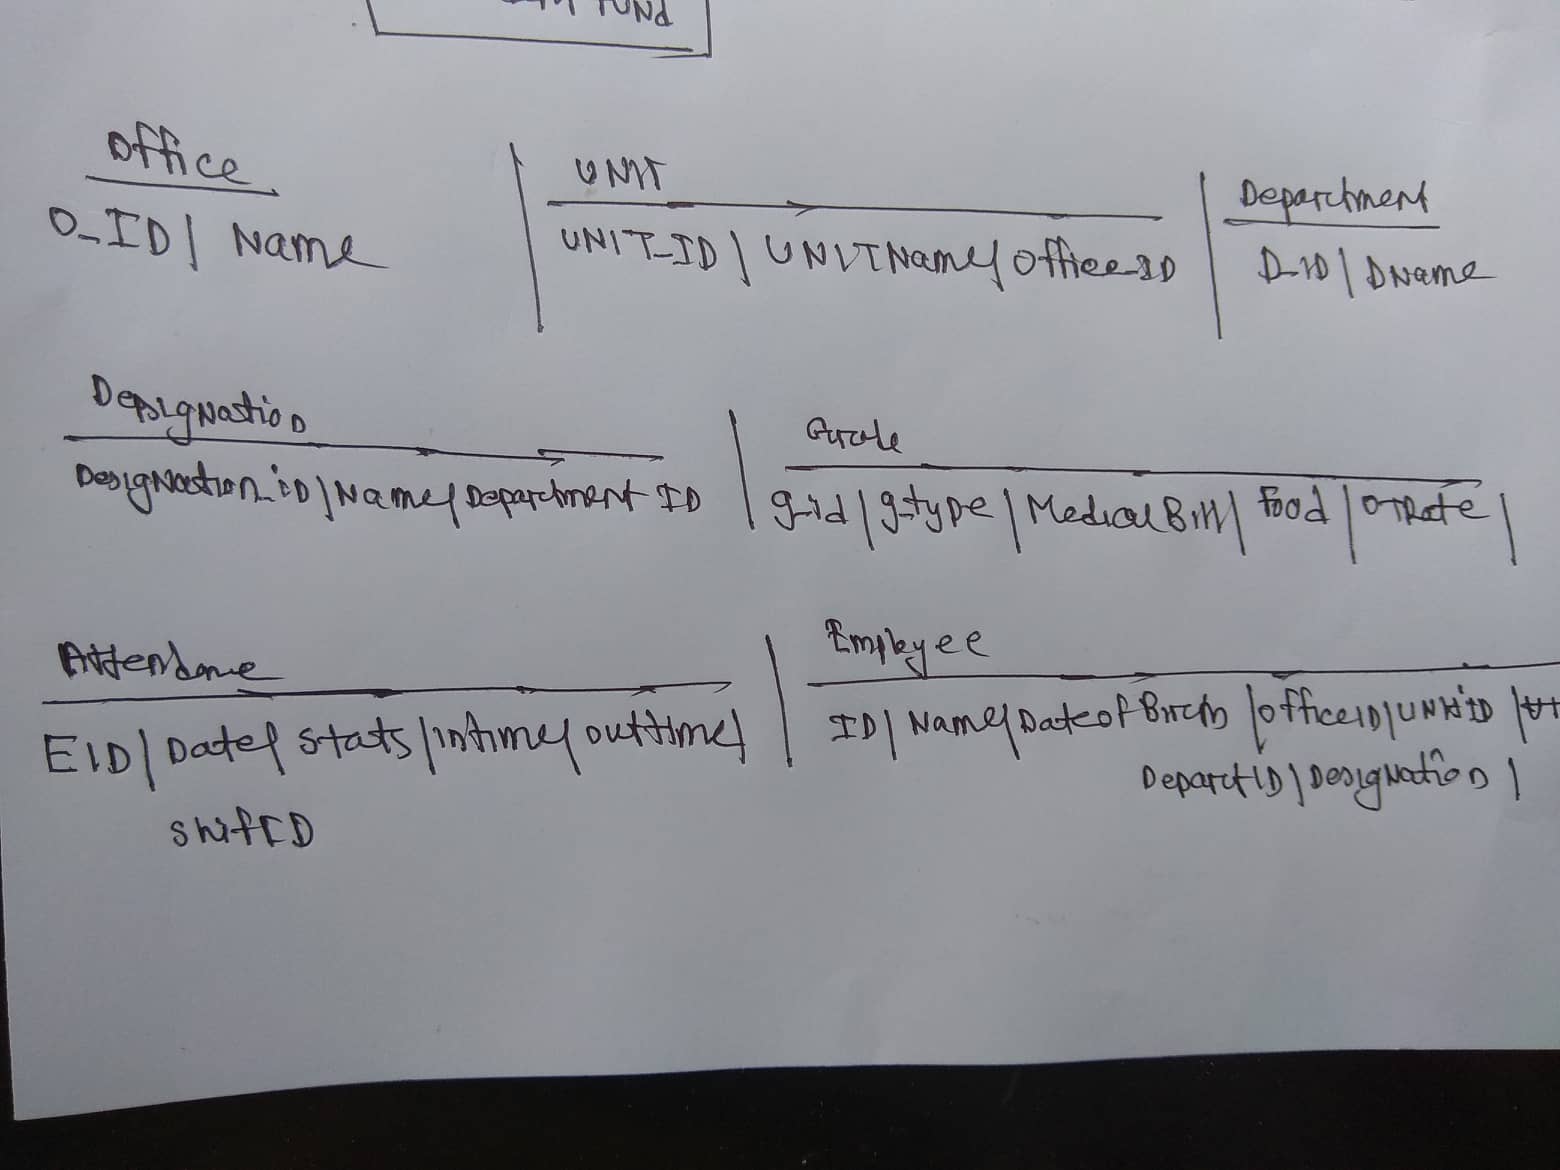 Fund
Office
O_ID | Name
UNIT
UNIT_ID | UNITName | Office_ID
Department
D_ID | DName
Designation
Designation_iD | Name | Department ID
Grade
g_id | g_type | Medical Bill | Food | OTRate |
Attendance
EID | Date | Stats | intime | outtime |
ShifID
Employee
ID | Name | Date of Birth | officeID | UNitiD |
DepartID | Designation |